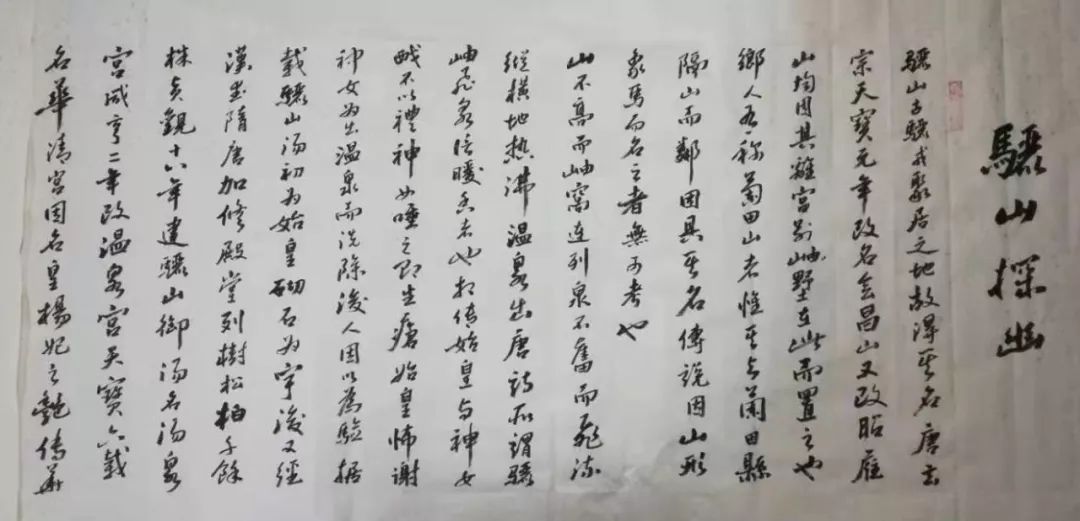 驪山探幽
驪山古驪戎聚居之地故得其名唐玄
宗天寶元年改名會昌山又改昭應
山均因其離宮別岫墅在此而置之也
鄉人有称藍田山者惟其与藍田縣
隔山而鄰因具其名傳說因山形
象馬而名之者無可考也
山不高而岫窩連列泉不奮而飛流
縱横地热沸温泉出唐詩所謂驪
岫飛泉泛暖香者也相传始皇与神女
戲不以禮神女唾之即生瘡始皇怖谢
神女为出温泉而洗除後人因以為驗据
載驪山汤初为始皇砌石为宇後又经
漢武隋唐加修殿堂列樹松柏千餘
株貞觀十八年建驪山御汤名汤泉
宮咸亨二年改温泉宮天寶六載
名華清宮因名皇楊妃之艷传華